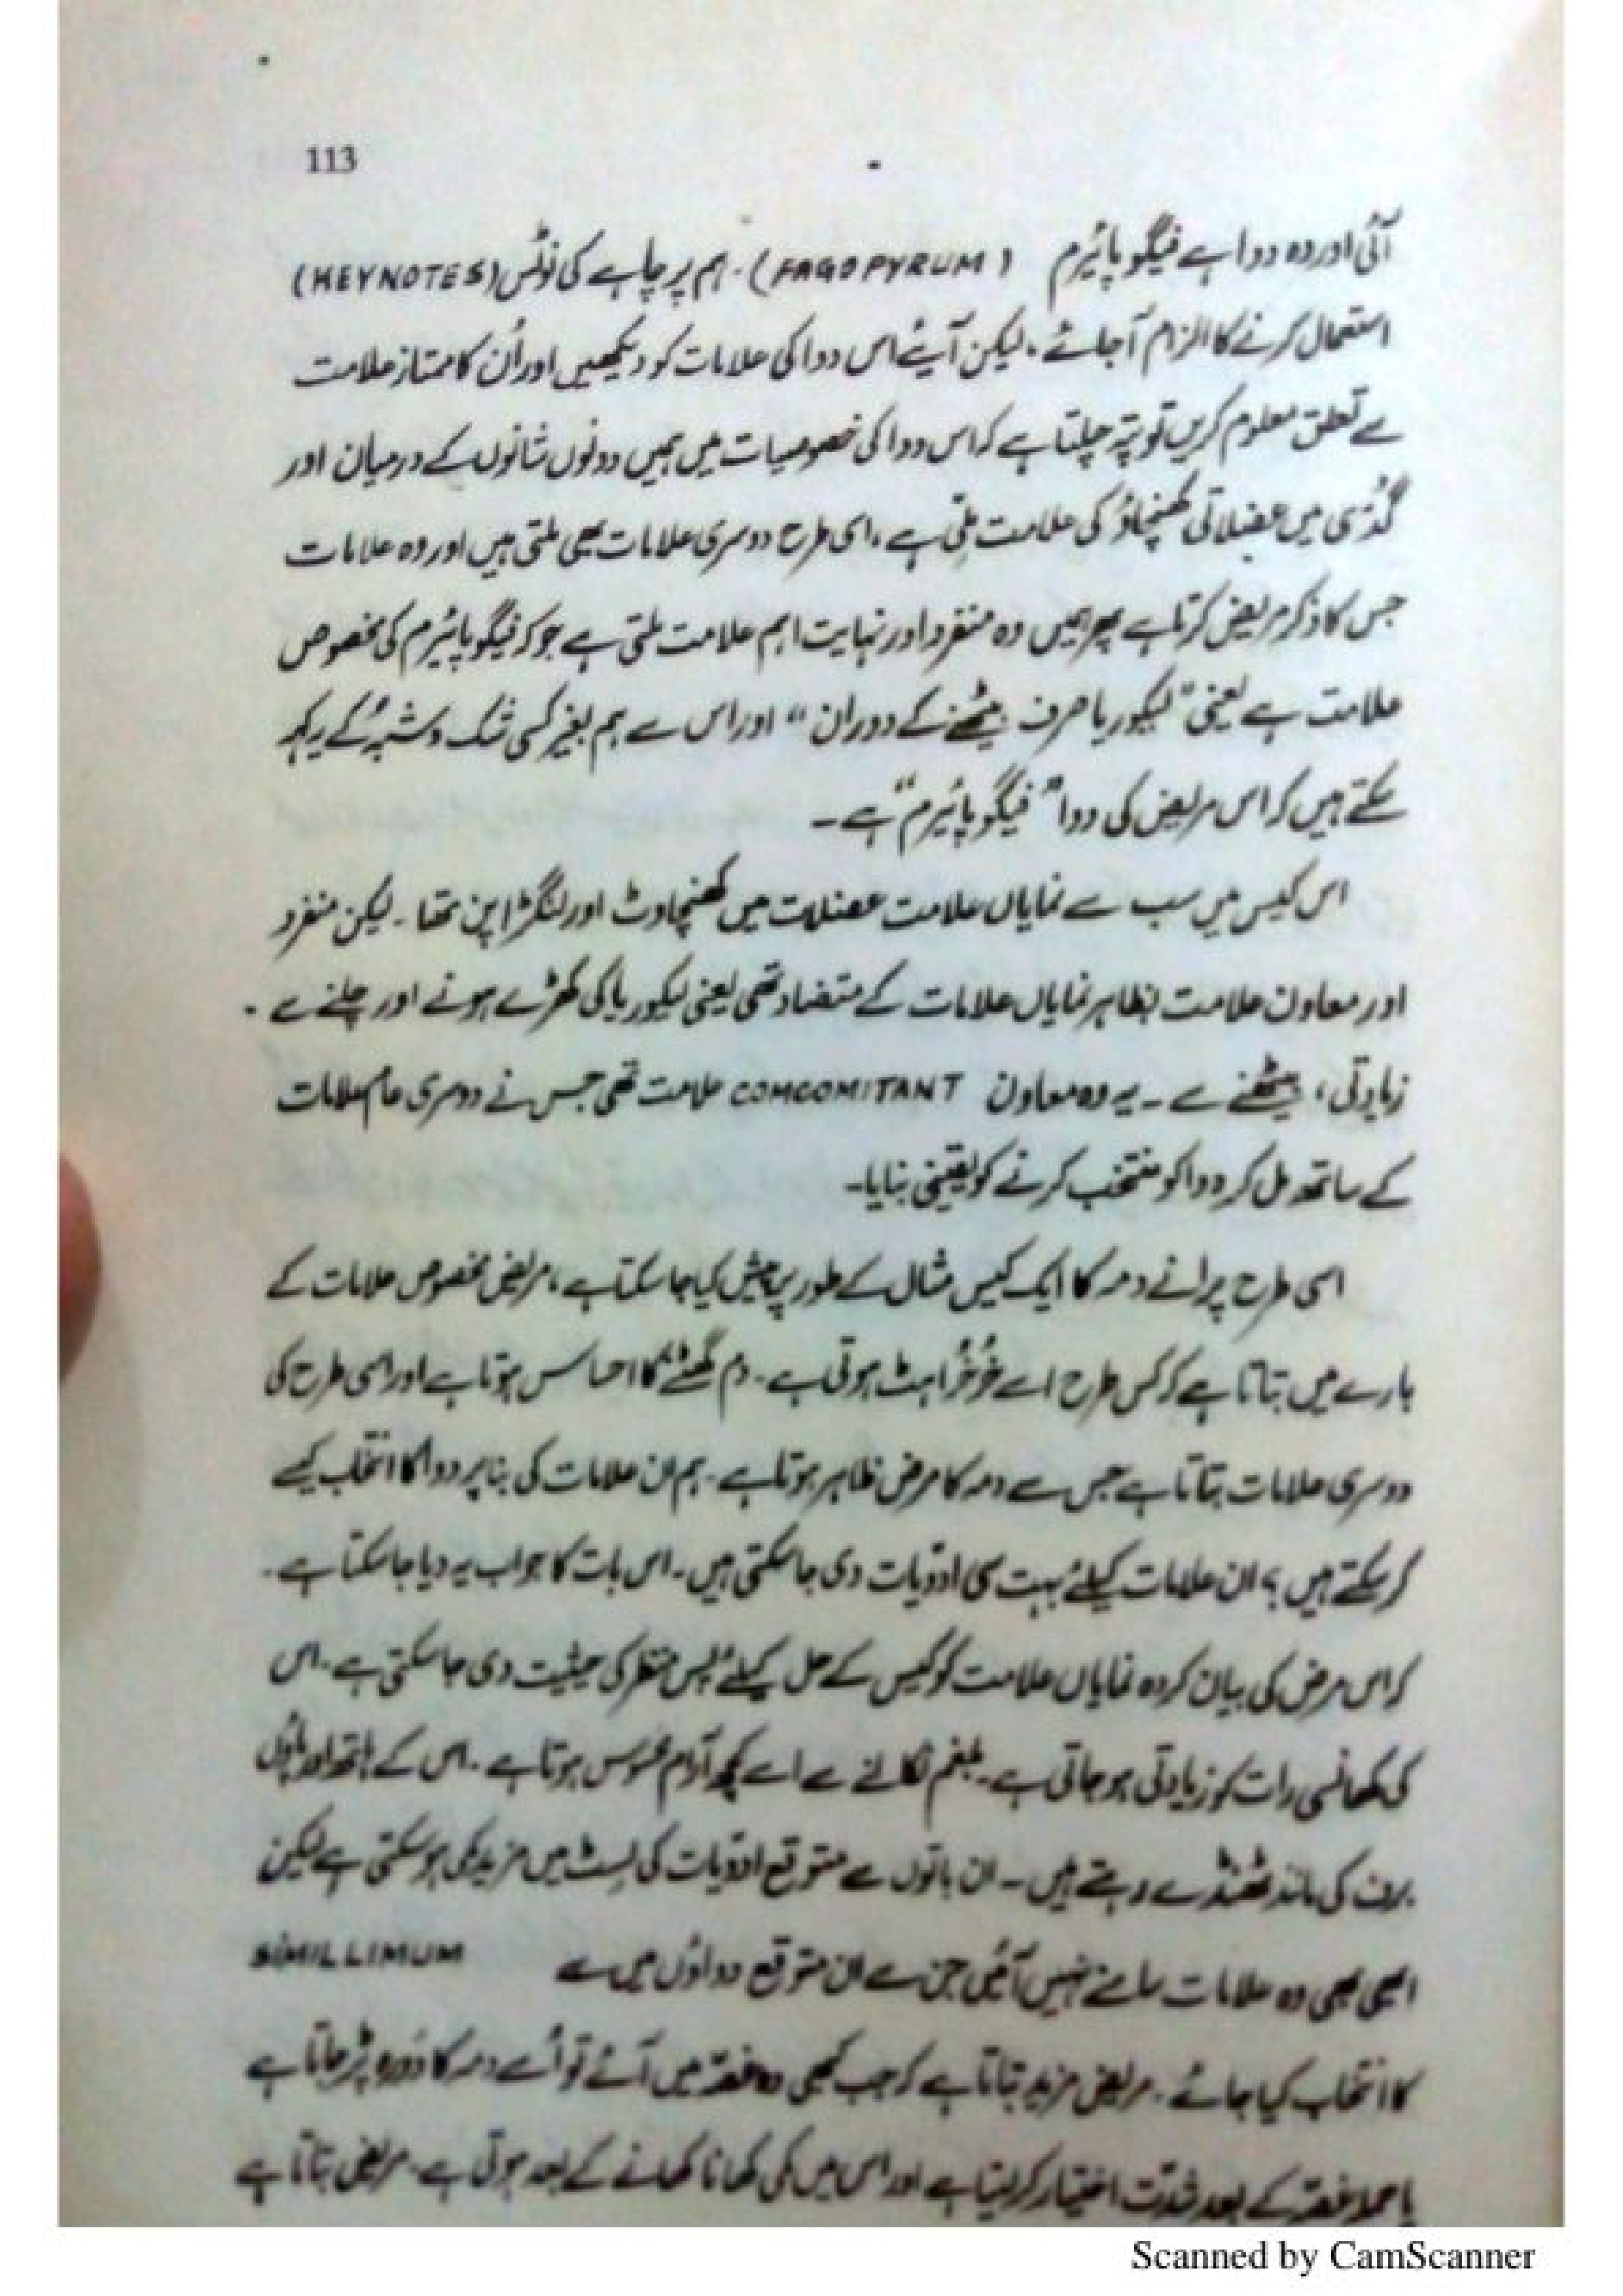 113
آئی اور وہ دوا ہے فیگوپائیرم (FAGOPYRUM)۔ ہم پر چاہے کی نوٹس (KEYNOTES)
استعمال کرنے کا الزام آ جائے، لیکن آیئے اس دوا کی علامات کو دیکھیں اور اُن کا ممتاز علامت
سے تعلق معلوم کریں تو پتہ چلتا ہے کہ اس دوا کی خصوصیات میں ہمیں دونوں شانوں کے درمیان اور
گُدّی میں عضلاتی کھنچاؤ کی علامت ملتی ہے، اسی طرح دوسری علامات بھی ملتی ہیں اور وہ علامات
جس کا ذکر مریض کرتا ہے پھر ہمیں وہ منفرد اور نہایت اہم علامت ملتی ہے جو کہ فیگوپائیرم کی مخصوص
علامت ہے یعنی "لیکوریا صرف بیٹھنے کے دوران" اور اس سے ہم بغیر کسی شک و شبہ کے یہ کہہ
سکتے ہیں کہ اس مریض کی دوا "فیگوپائیرم" ہے۔
اس کیس میں سب سے نمایاں علامت عضلات میں کھنچاوٹ اور لنگڑا پن تھا۔ لیکن منفرد
اور معاون علامت بظاہر نمایاں علامات کے متضاد تھی یعنی لیکوریا کی کھڑے ہونے اور چلنے سے
زیادتی، بیٹھنے سے۔ یہ وہ معاون COMCOMITANT علامت تھی جس نے دوسری عام علامات
کے ساتھ مل کر دوا کو منتخب کرنے کو یقینی بنایا۔
اسی طرح پرانے دمہ کا ایک کیس مثال کے طور پر پیش کیا جا سکتا ہے، مریض مخصوص علامات کے
بارے میں بتاتا ہے کہ کس طرح اسے خُرخُراہٹ ہوتی ہے۔ دم گھٹنے کا احساس ہوتا ہے اور اسی طرح کی
دوسری علامات بتاتا ہے جس سے دمہ کا مرض ظاہر ہوتا ہے۔ ہم ان علامات کی بنا پر دوا کا انتخاب کیسے
کر سکتے ہیں؟ ان علامات کیلئے بہت سی ادویات دی جا سکتی ہیں۔ اس بات کا جواب یہ دیا جا سکتا ہے۔
کہ اس مرض کی بیان کردہ نمایاں علامت کو کیس کے حل کیلئے پس منظر کی حیثیت دی جا سکتی ہے۔ اس
کی کھانسی رات کو زیادتی ہو جاتی ہے۔ بلغم نکالنے سے اسے کچھ آرام محسوس ہوتا ہے۔ اس کے ہاتھ اور پاؤں
برف کی مانند ٹھنڈے رہتے ہیں۔ ان باتوں سے متوقع ادویات کی لسٹ میں مزید کمی ہو سکتی ہے لیکن
ابھی بھی وہ علامات سامنے نہیں آئیں جن سے ان متوقع دواؤں میں سے SIMILLIMUM
کا انتخاب کیا جائے۔ مریض مزید بتاتا ہے کہ جب کبھی وہ غصہ میں آئے تو اُسے دمہ کا دَورہ پڑ جاتا ہے
یا حملہ غصہ کے بعد شدت اختیار کر لیتا ہے اور اس میں کمی کھانا کھانے کے بعد ہوتی ہے۔ مریض بتاتا ہے
Scanned by CamScanner